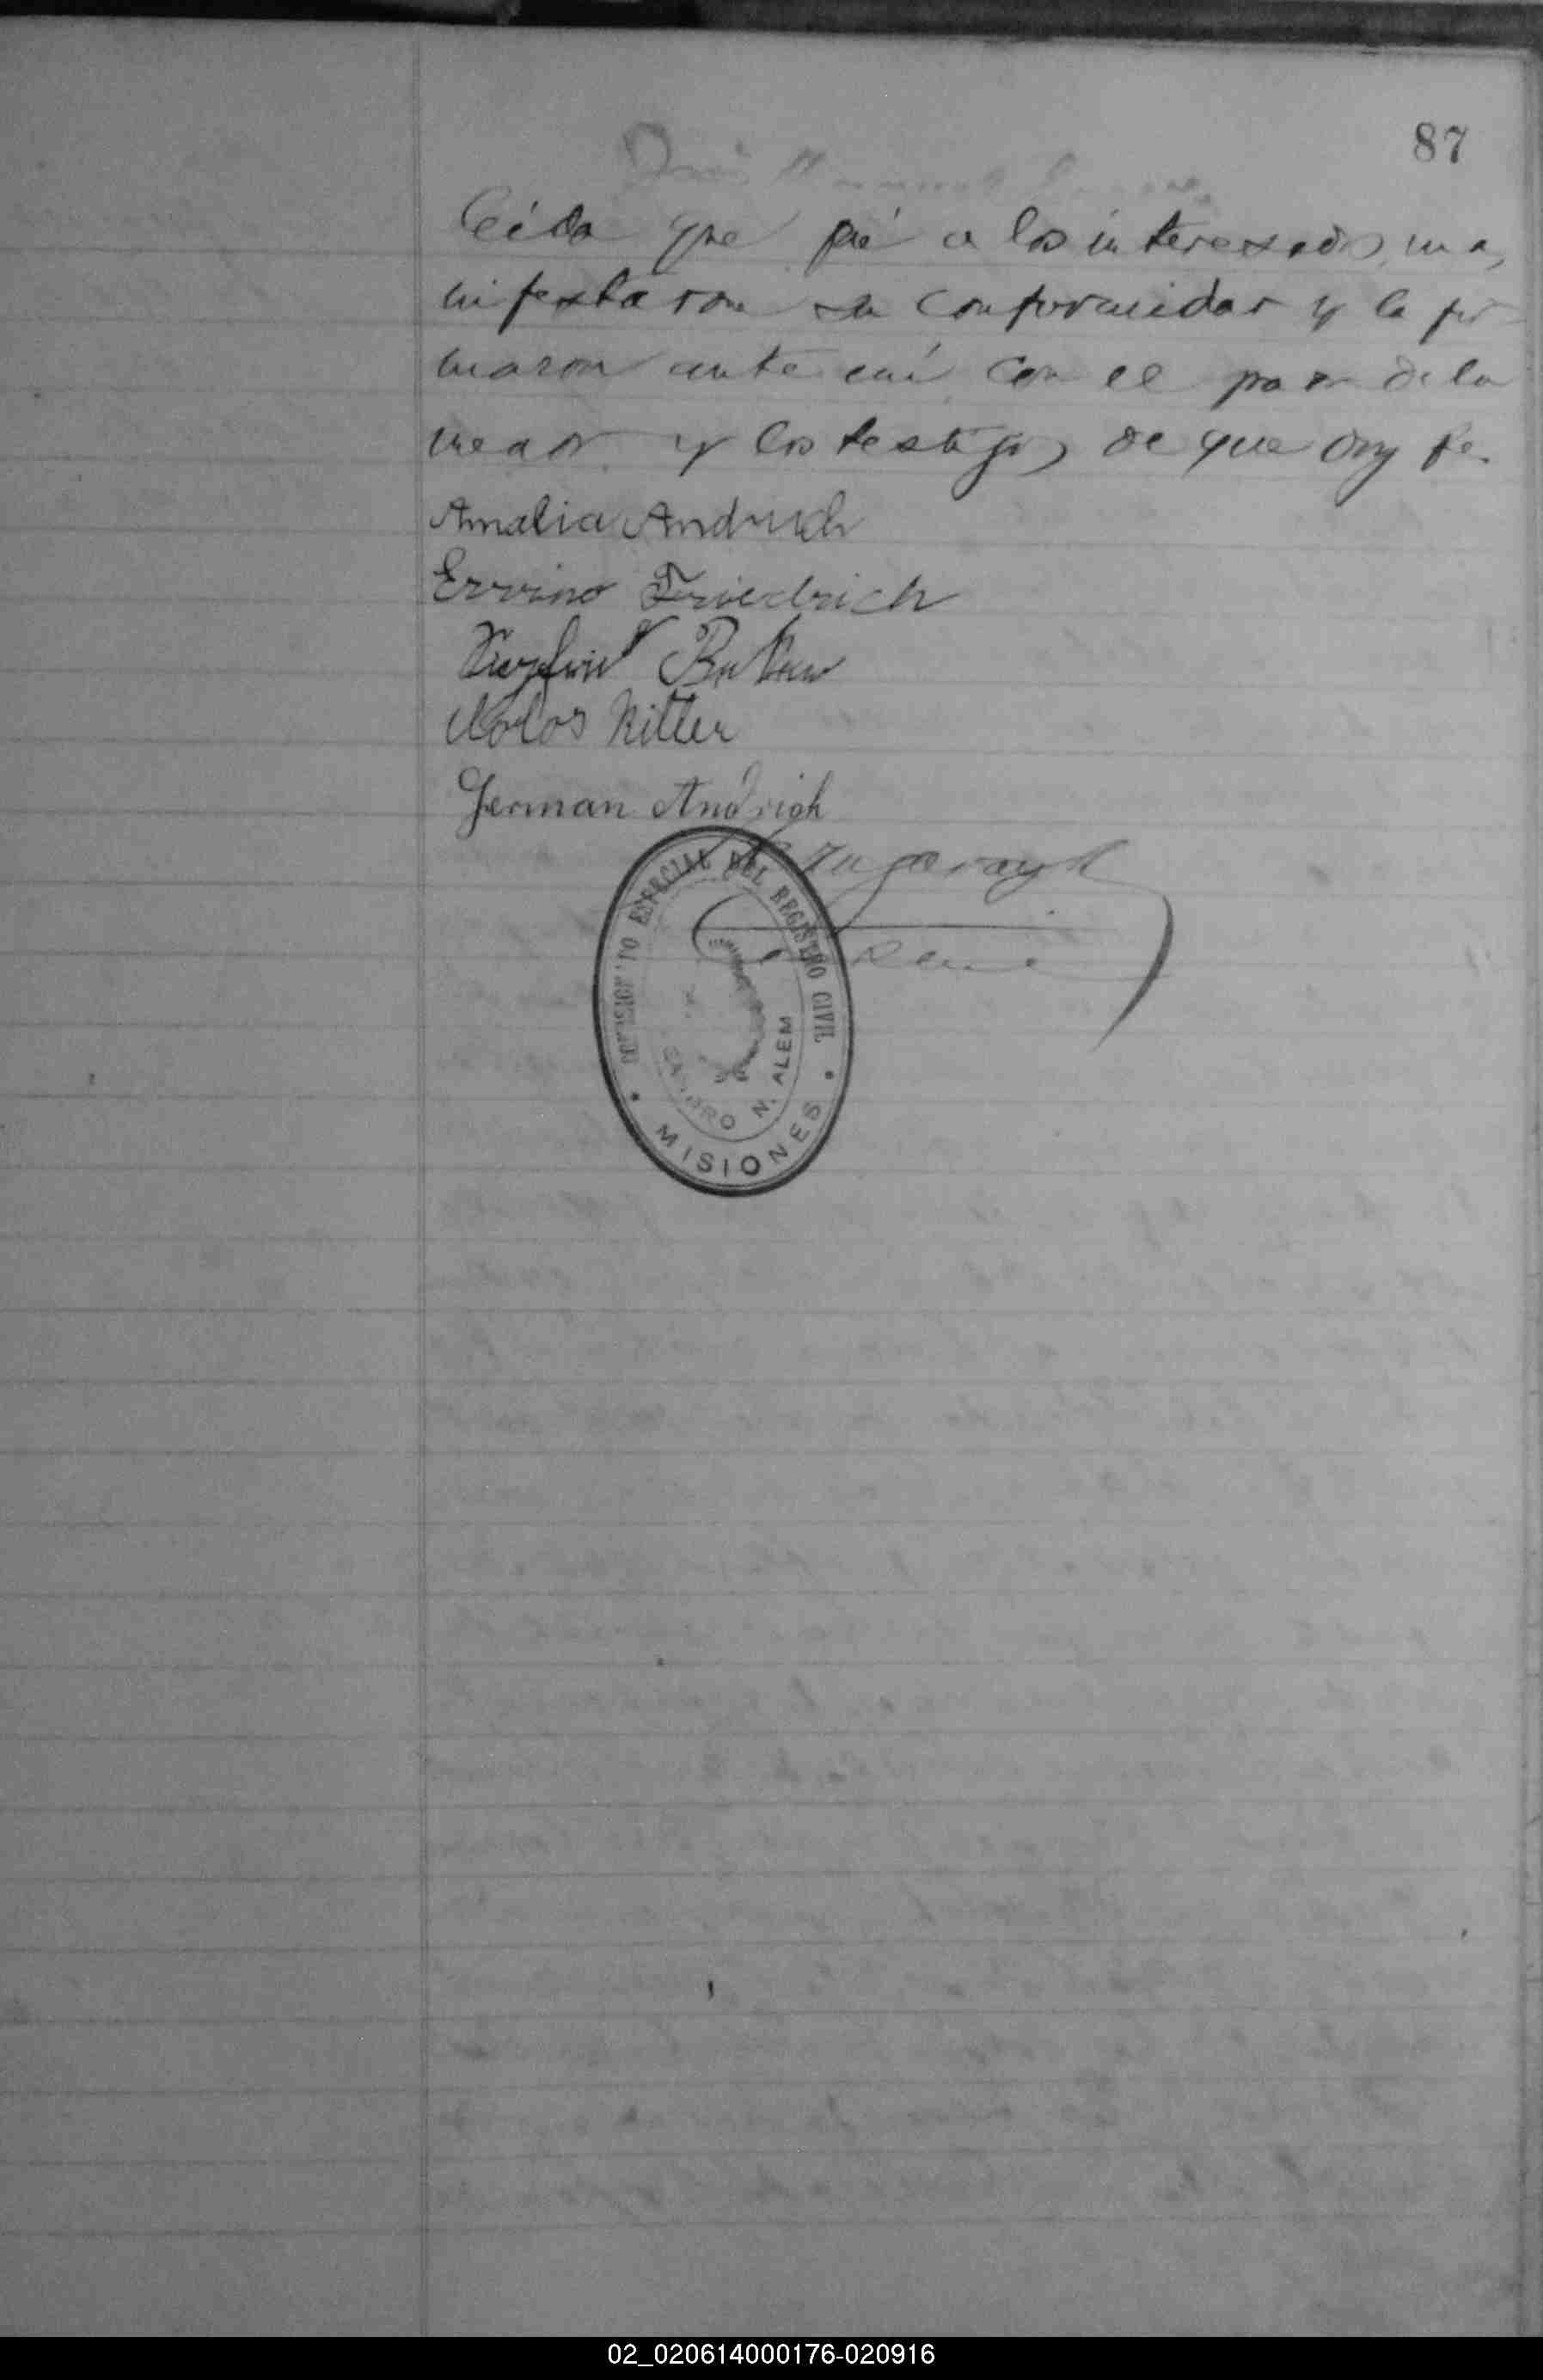 87
leída que fué a los interesados, ma,
nifestaron su conformidad y la fir-
maron ante mí con el padre de la
menor y los testigos de que doy fe.
Amalia Andrich
Ervino Friedrich
Ritter
German Andrich
ESPECIAL DEL REGISTRO CIVIL
N. ALEM
MISIONES
02_020614000176-020916